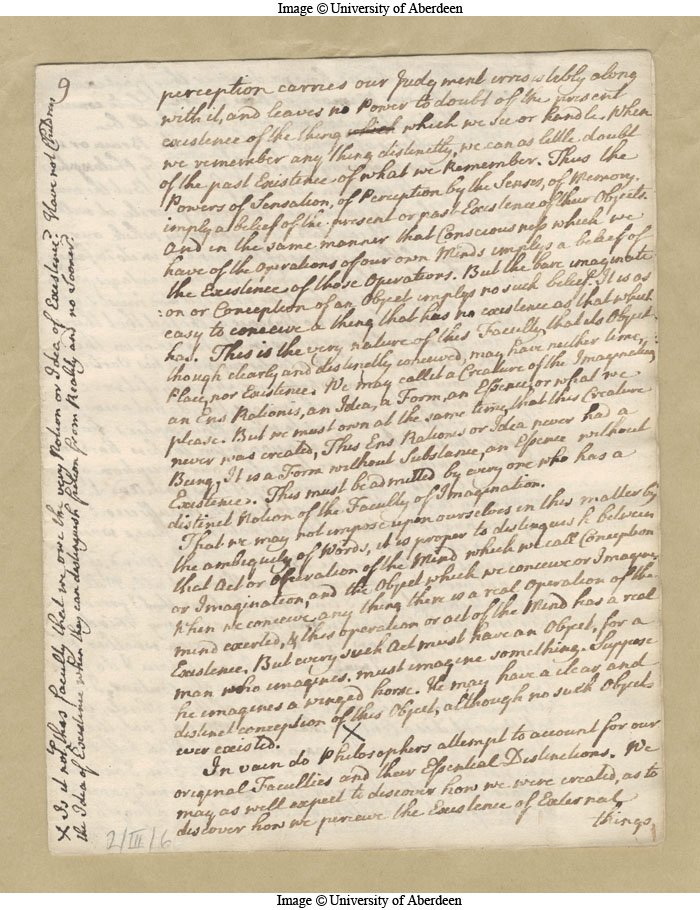 Image © University of Aberdeen
9
perception carries our Judgment irresistebly along
with it, and leaves no Power to doubt of the present
existence of the thing which which we see or handle. When
we remember any thing distinctly, we can as little doubt
of the past Existence of what we Remember. Thus the
Powers of Sensation, of Perception by the Senses, of Memory.
imply a belief of the present or past Existence of their Objects.
And in the same manner that Consciousness which we
have of the Operations of our own Minds implys a belief of
the Existence of those Operations. But the bare imaginati
:on or Conception of an Object implys no such belief. It is as
easy to conceive a thing that has no existence as that which
has. This is the very nature of this Faculty that its Object
though clearly and distinctly conceived, may have neither time,
Place, nor Existence. We may call it a Creature of the Imagination
an Ens Rationis, an Idea, a Form, an Essence, or what we
please. But we must own at the same time, that this Creature
never was created, This Ens Rationis or Idea never had a
Being, It is a Form without Substance, an Essence without
Existence. This must be admitted by every one who has a
distinct Notion of the Faculty of Imagination.
That we may not impose upon ourselves in this matter by
the ambiguity of Words, it is proper to distinguish between
that Act or Operation of the Mind which we call Conception
or Imagination, and the Object which we conceive or Imagine.
When we conceive any thing there is a real Operation of the
mind exerted, & this operation or act of the Mind has a real
Existence. But every such Act must have an Object, for a
man who imagines, must imagine something. Suppose
he imagines a winged horse. He may have a clear and
distinct conception of this Object, although no such Object
ever existed. X
In vain do Philosophers attempt to account for our
original Faculties and their Essential Distinctions. We
may as well expect to discover how we were created, as to
discover how we perceive the Existence of External
things
X Is it not to this Faculty that we owe the very Notion or Idea of Existence? Have not Children
the Idea of Existence when they can distinguish fiction from Reality and no sooner?
2/III/6
Image © University of Aberdeen